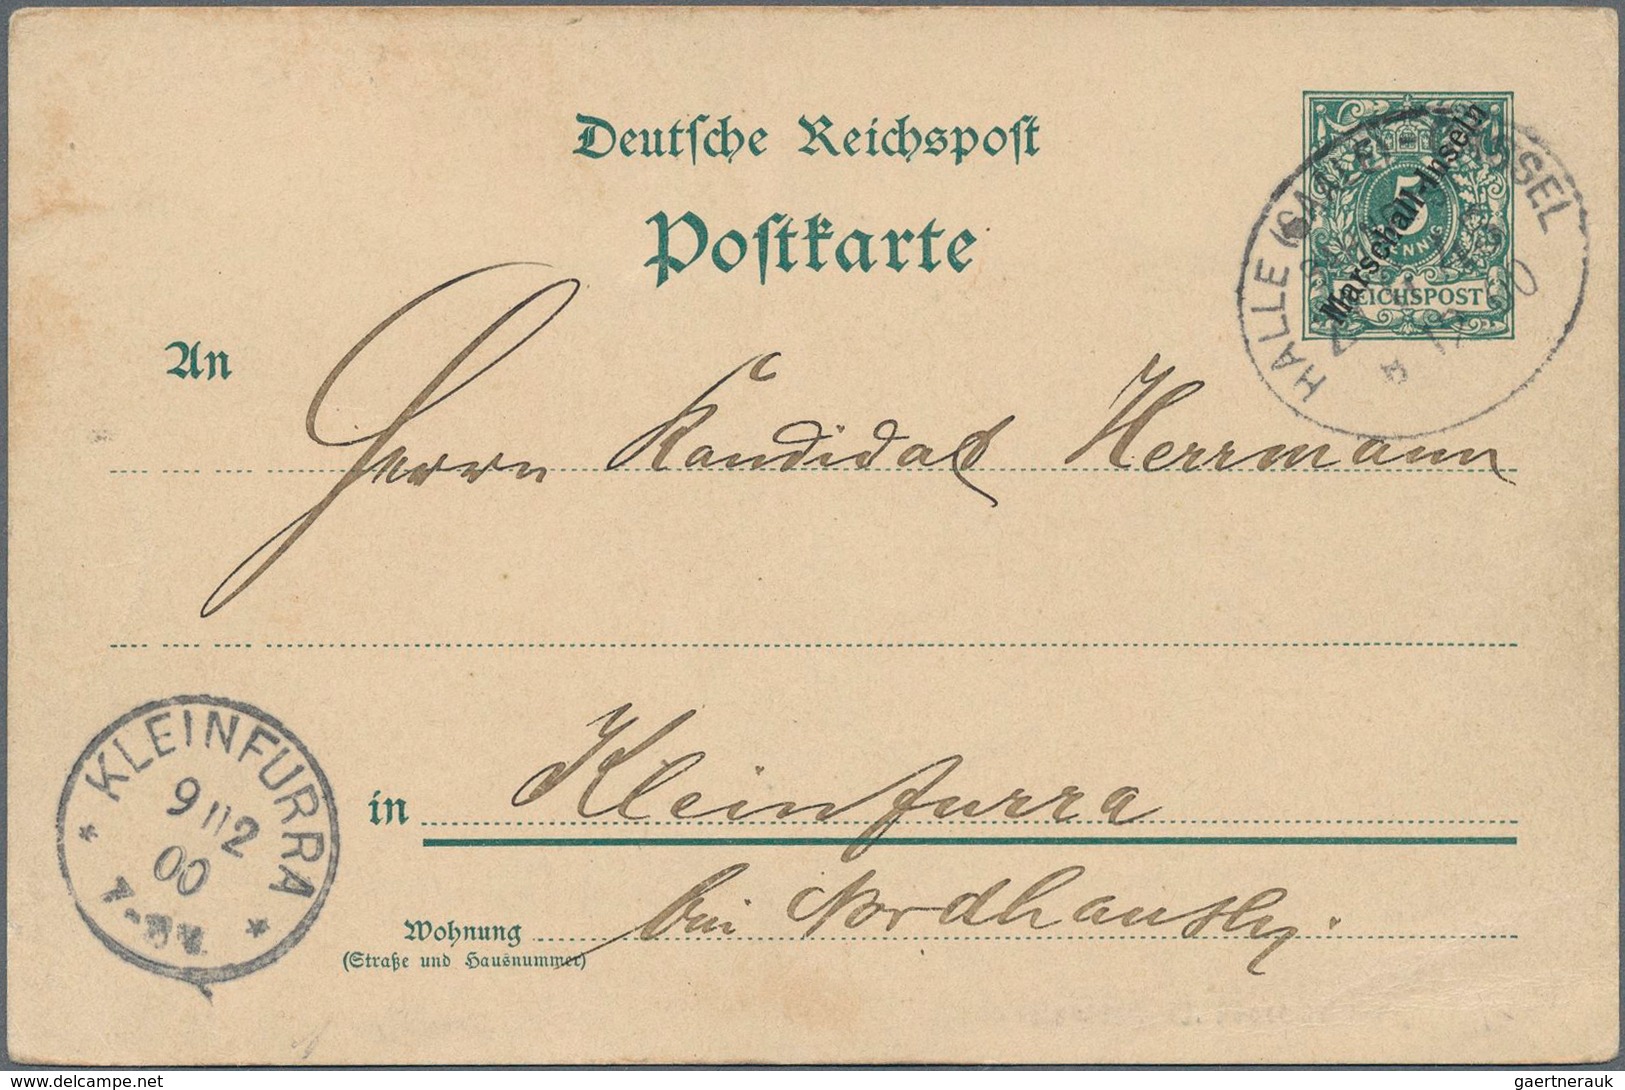 Deutsche Reichspost
Postkarte
5
PFENNIG
REICHSPOST
Marschall-Inseln
HALLE (SAALE) - CASSEL
An
Herrn Kandidat Herrmann
KLEINFURRA
9 11 2
00
in Kleinfurra
Wohnung bei Nordhausen.
(Straße und Hausnummer)
www.delcampe.net
gaertnerauk